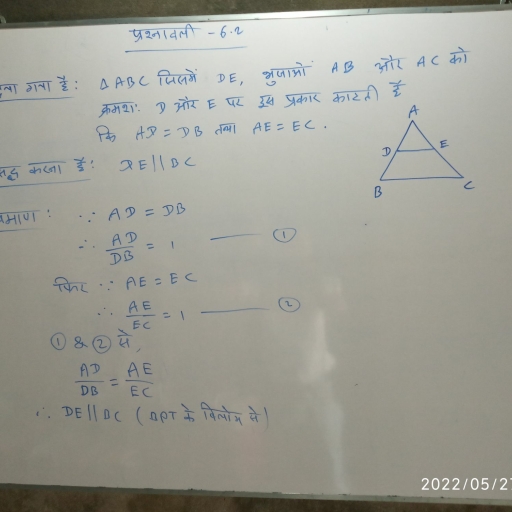 प्रश्नावली - 6.2
दिया गया है: △ABC जिसमें DE, भुजाओं AB और AC को
क्रमशः D और E पर इस प्रकार काटती है
कि AD = DB तथा AE = EC.
A
D E
B C
सिद्ध करना है: DE || BC
प्रमाण: ∵ AD = DB
∴ AD/DB = 1 ——— ①
फिर ∵ AE = EC
∴ AE/EC = 1 ——— ②
① & ② से,
AD/DB = AE/EC
∴ DE || BC (BPT के विलोम से)
2022/05/27